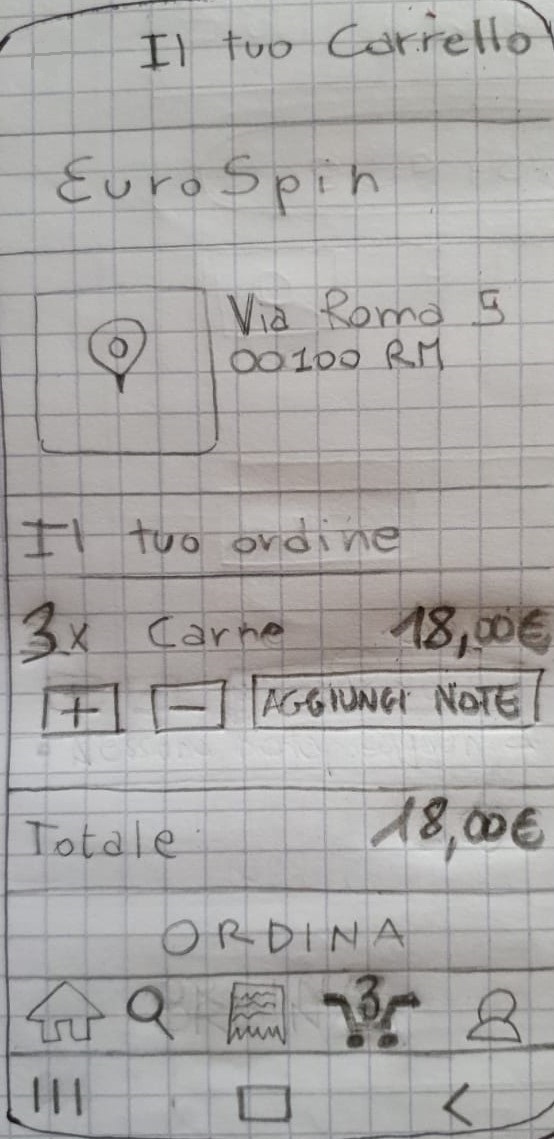 Il tuo Carrello
EuroSpin
Via Roma 5
00100 RM
Il tuo ordine
3x Carne 18,00€
+ - AGGIUNGI NOTE
Totale 18,00€
ORDINA
3